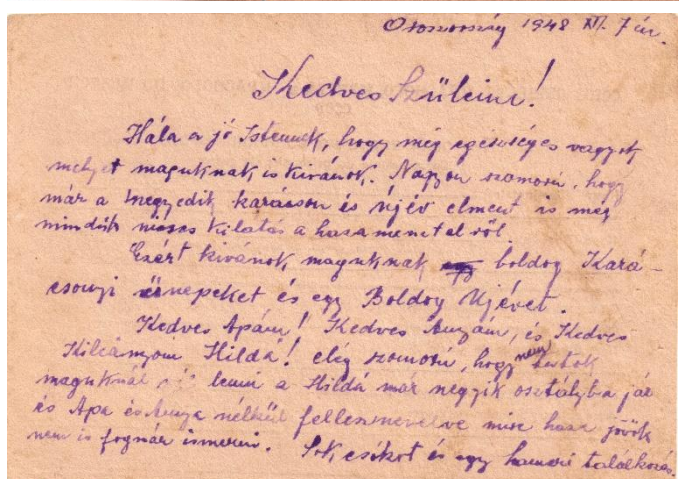 Oroszország 1948 XII. 7 én.
Kedves Szüleim!
Hála a jó Istennek, hogy még egésséges vagyok
melyet maguknak is kivánok. Nagyon szomorú, hogy
már a negyedik karácson és újév elment is még
mindik nincs kilatás a haza menetelről.
Ezért kivánok maguknak boldog Kará-
csonyi ünepeket és egy Boldog Ujévet.
Kedves Apám! Kedves Anyám, és Kedves
Hilda! elég szomorú, hogy nem tudok
maguknál lenni a Hilda már negyik osztályba jár
és Apa és Anya nélkül mire haza jövök
nem is fognár ismerni. Sok csókot és egy hamari találkozás.